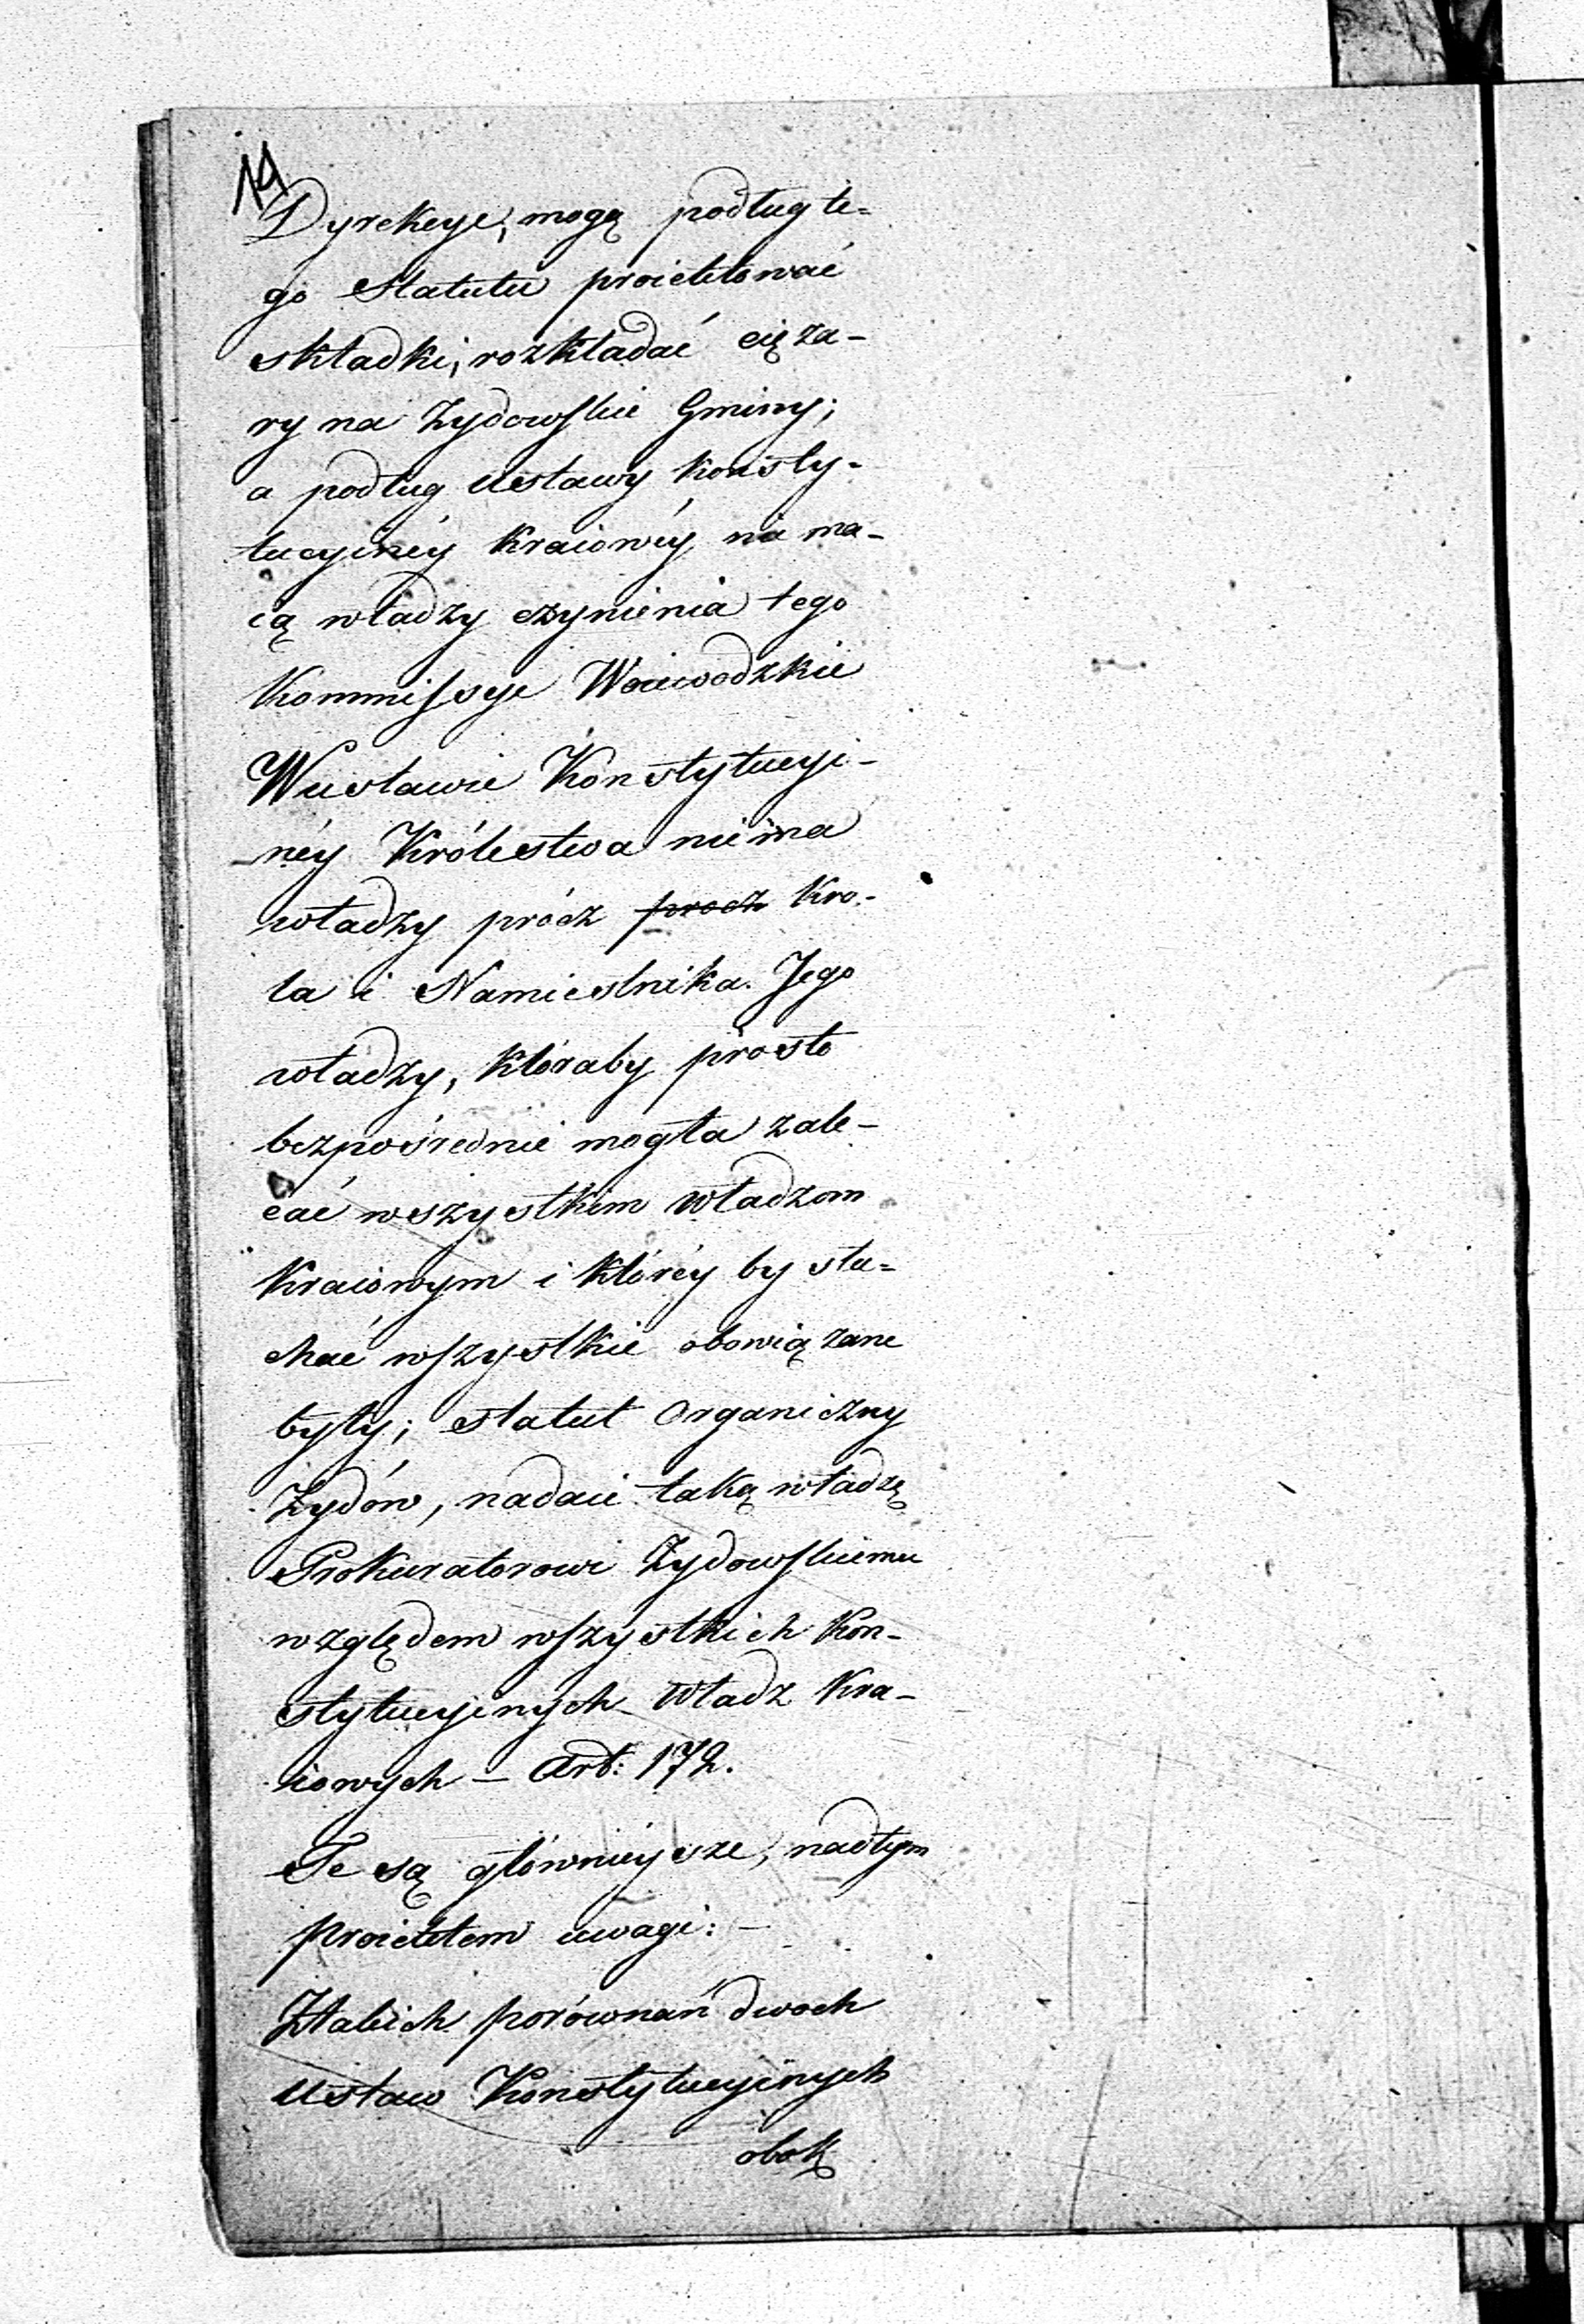 19
Dyrekcye, mogą podług te=
go Statutu proiektować
składki, rozkładać cięża-
ry na Żydowskie Gminy;
a podług Ustawy Konsty-
tucyinéy Kraiowéy nie ma-
ią władzy czynienia tego
Kommissye Woiewodzkie
W ustawie Konstytucyi-
-néy Królestwa niema
władzy prócz procz Kró-
la i Namiestnika Jego
władzy, któraby prosto
bezpośrednie mogła zale-
cać wszystkim władzom
Kraiowym i któréy by słu=
chać wszystkie obowiązane
były; statut Organiczny
Żydów, nadaie taką władzę
Prokuratorowi Żydowskiemu
względem wszystkich Kon-
stytucyinych Władz Kra-
iowych — Art: 172.
Te są główniéysze, nadtym
proiektem uwagi: —
Z takich porównań dwoch
Ustaw Konstytucyinych
obok